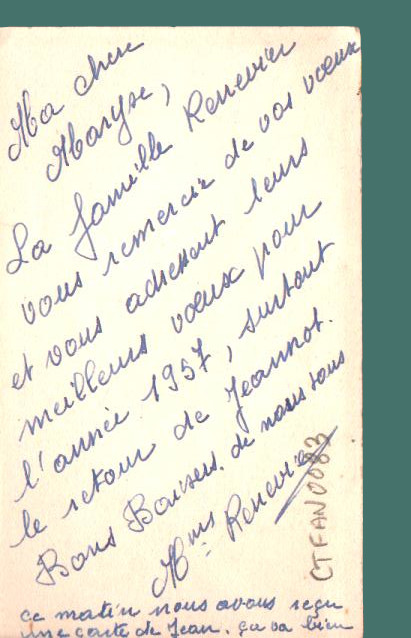 Ma chere
Maryse,
La famille Renevier
vous remercie de vos vœux
et vous adressent leurs
meilleurs vœux pour
l'année 1957, surtout
le retour de Jeannot.
Bons Baisers. de nous tous
Mms Renevier
CTFAN0083
ce matin nous avons reçu
une carte de Jean. ça va bien